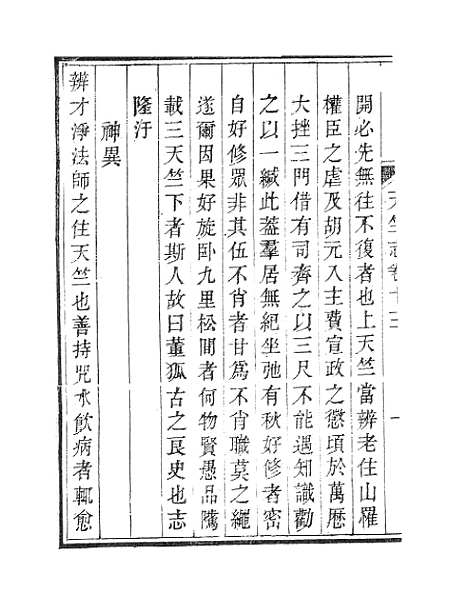 天竺志卷十三
一
開必先無往不復者也上天竺當辨老住山羅
權臣之虐及胡元入主費宣政之懲頃於萬厯
大挫三門借有司齊之以三尺不能遇知識勸
之以一緘此葢羣居無紀坐弛有秋好修者密
自好修眾非其伍不肖者甘爲不肖職莫之繩
遂爾因果好旋卧九里松間者何物賢愚品隲
載三天竺下者斯人故曰董狐古之良史也志
隆汙
神異
辨才淨法師之住天竺也善持咒水飮病者輒愈